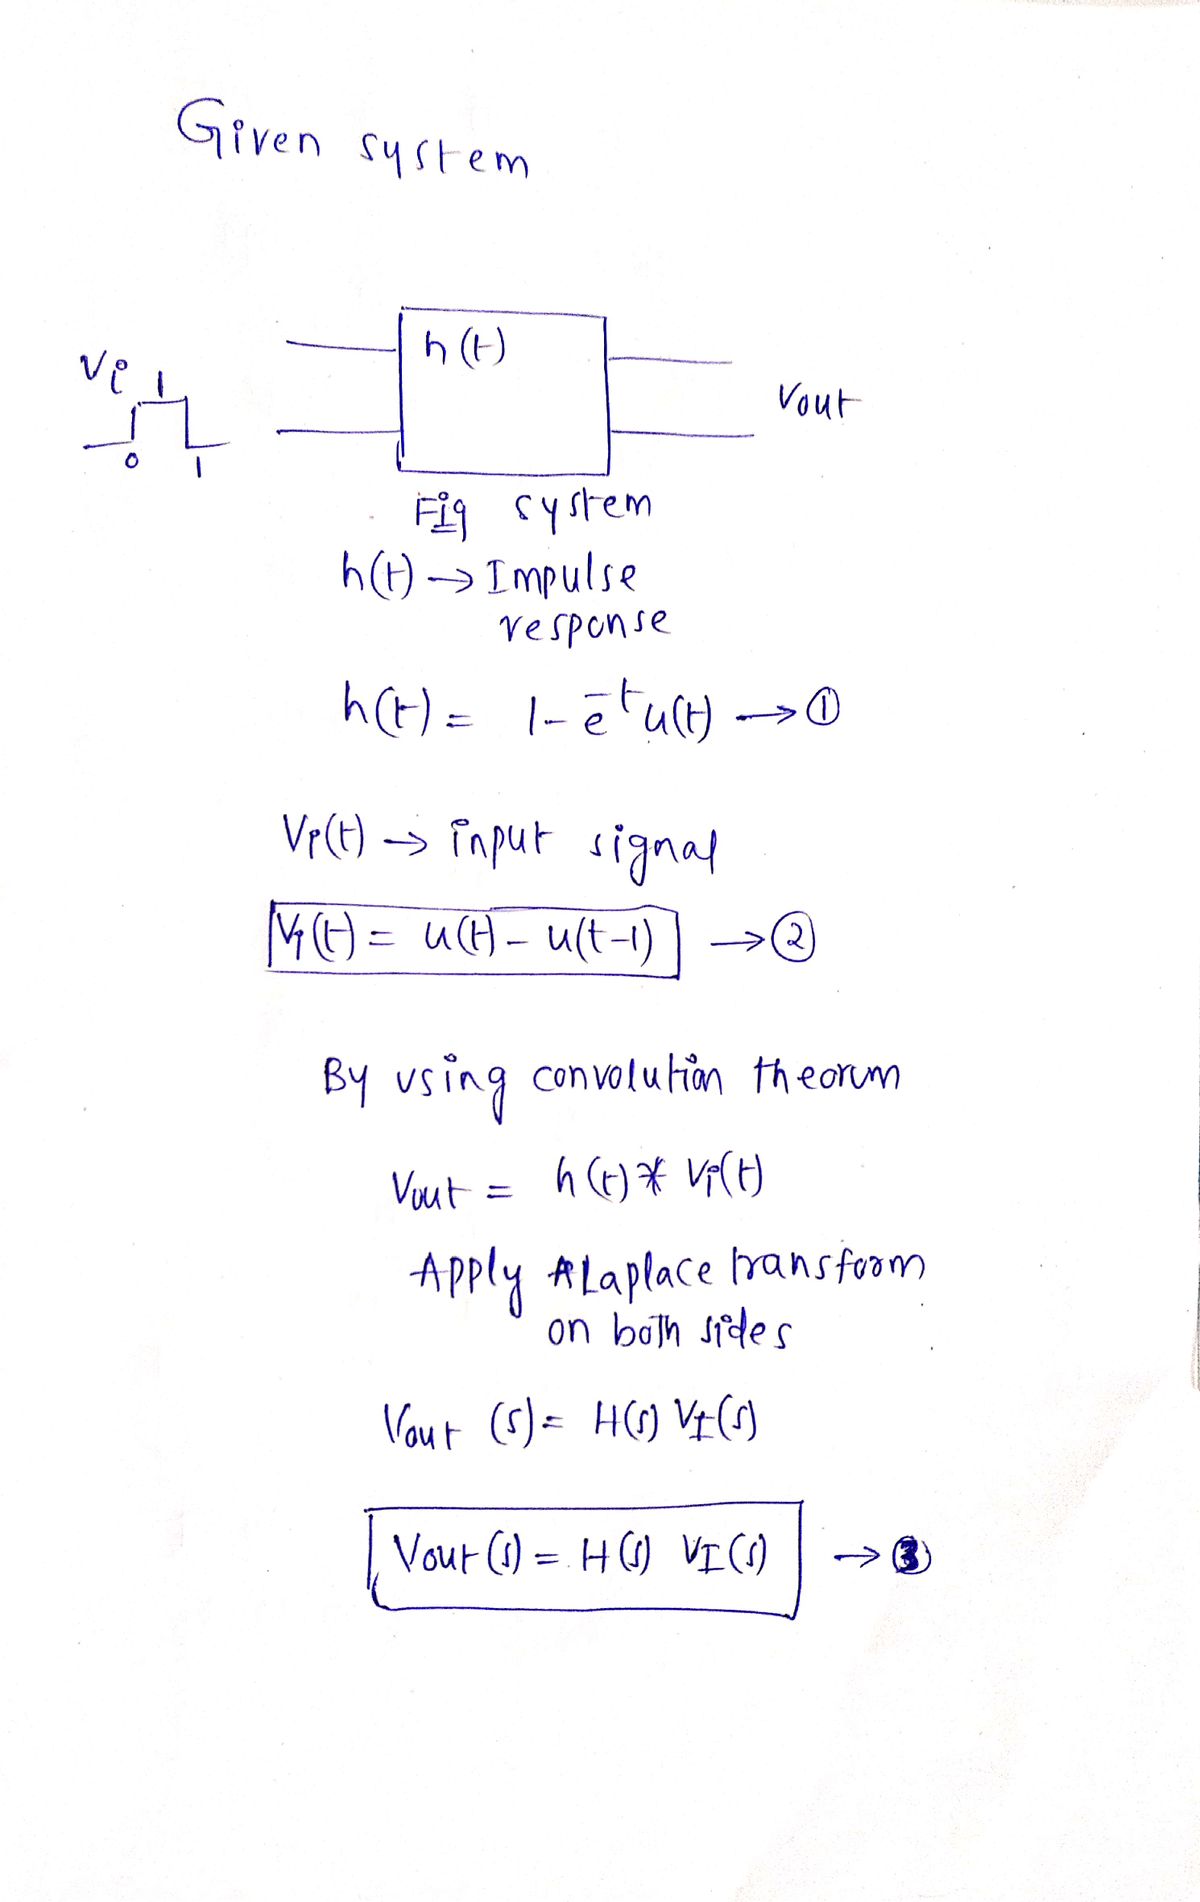 Given system
h(t)
Vi
1
Vout
0
1
Fig system
h(t) → Impulse
response
h(t) = 1 - e^-t u(t) → ①
Vi(t) → input signal
Vi(t) = u(t) - u(t-1) → ②
By using convolution theorum
Vout = h(t) * Vi(t)
Apply Laplace transform
on both sides
Vout (s) = H(s) VI(s)
Vout (s) = H(s) VI(s) → ③